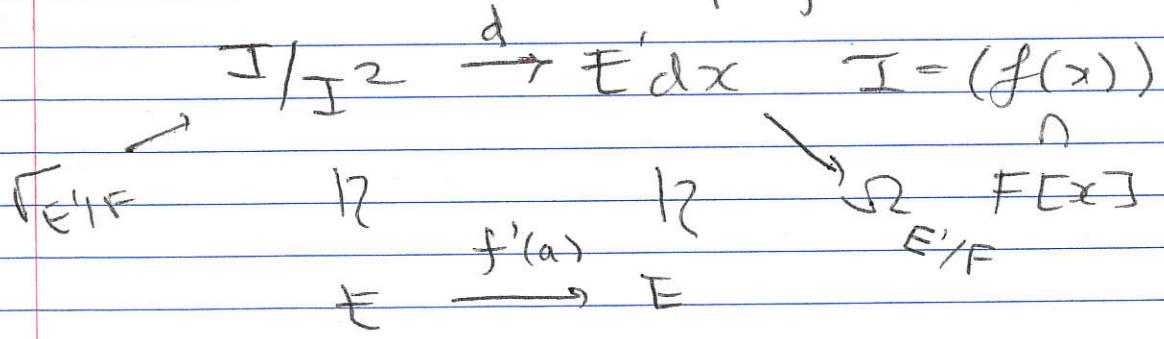 I/I² →d E'dx I = (f(x))
∩
Γ_{E'/F} ≅ ≅ Ω_{E'/F} F[x]
f'(a)
E → E